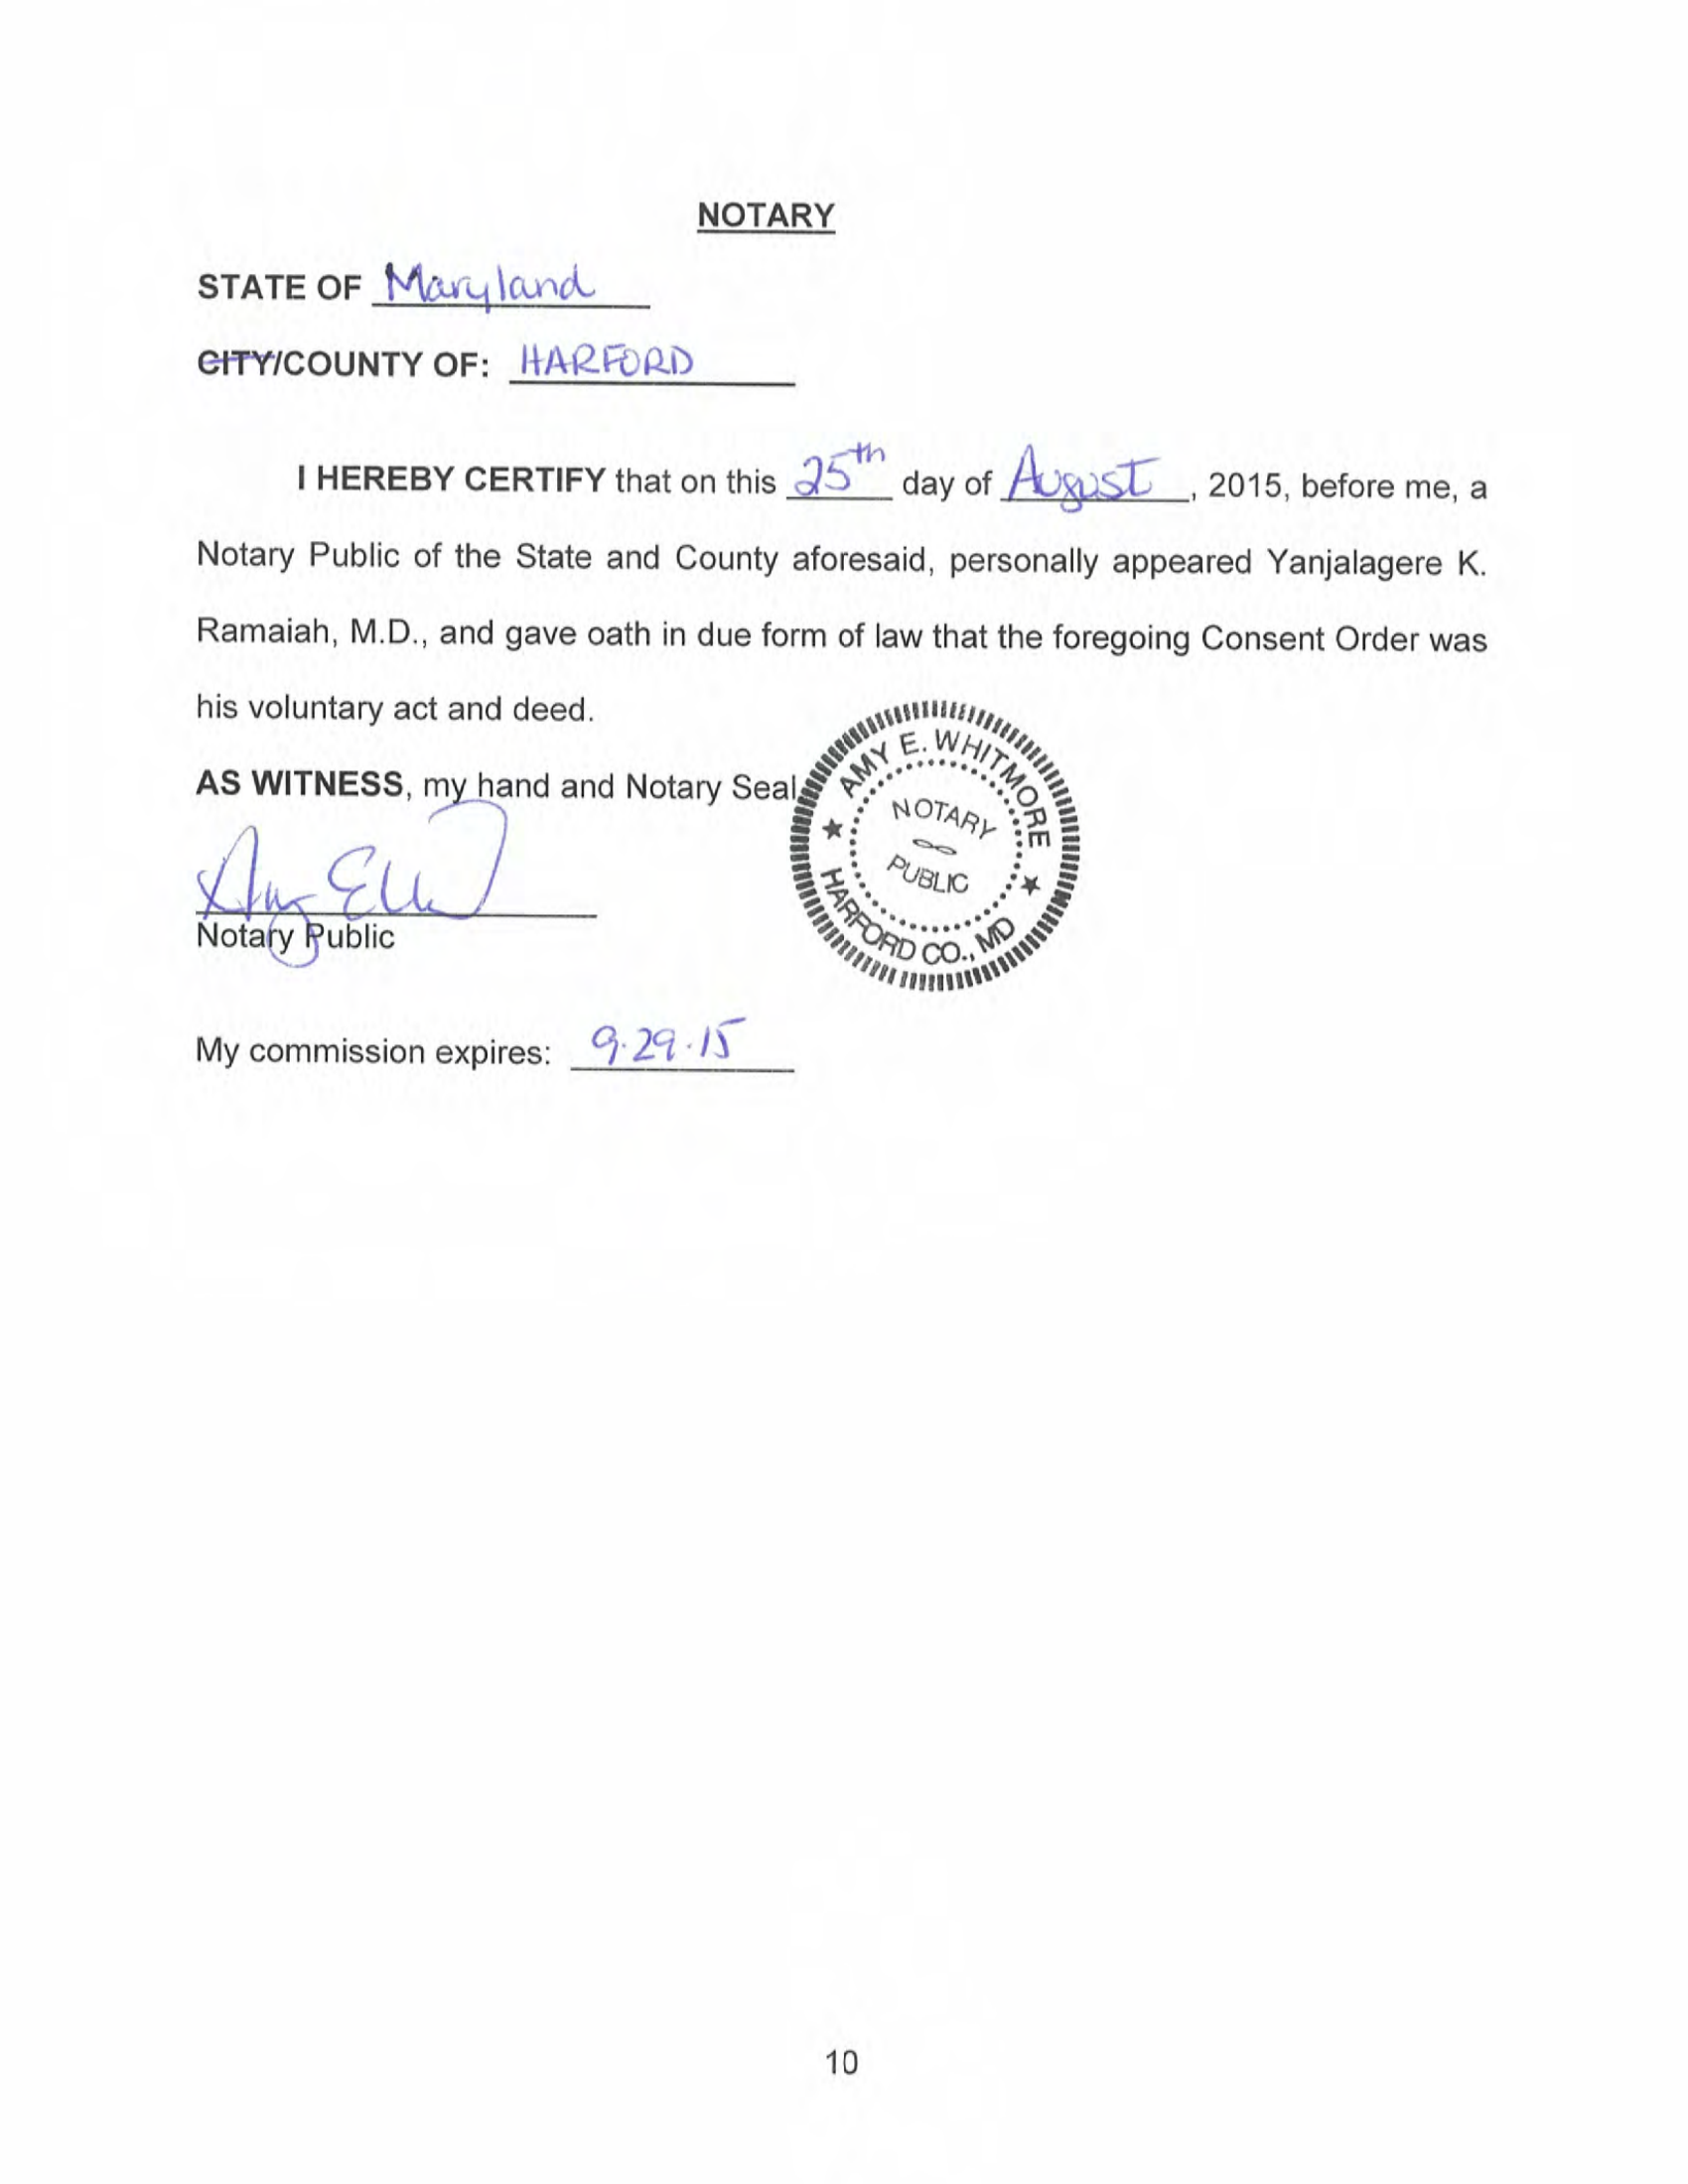 NOTARY
STATE OF Maryland
CITY/COUNTY OF: HARFORD
I HEREBY CERTIFY that on this 25th day of August, 2015, before me, a
Notary Public of the State and County aforesaid, personally appeared Yanjalagere K.
Ramaiah, M.D., and gave oath in due form of law that the foregoing Consent Order was
his voluntary act and deed.
AS WITNESS, my hand and Notary Seal
AMY E. WHITMORE
NOTARY
PUBLIC
HARFORD CO., MD
Notary Public
My commission expires: 9.29.15
10